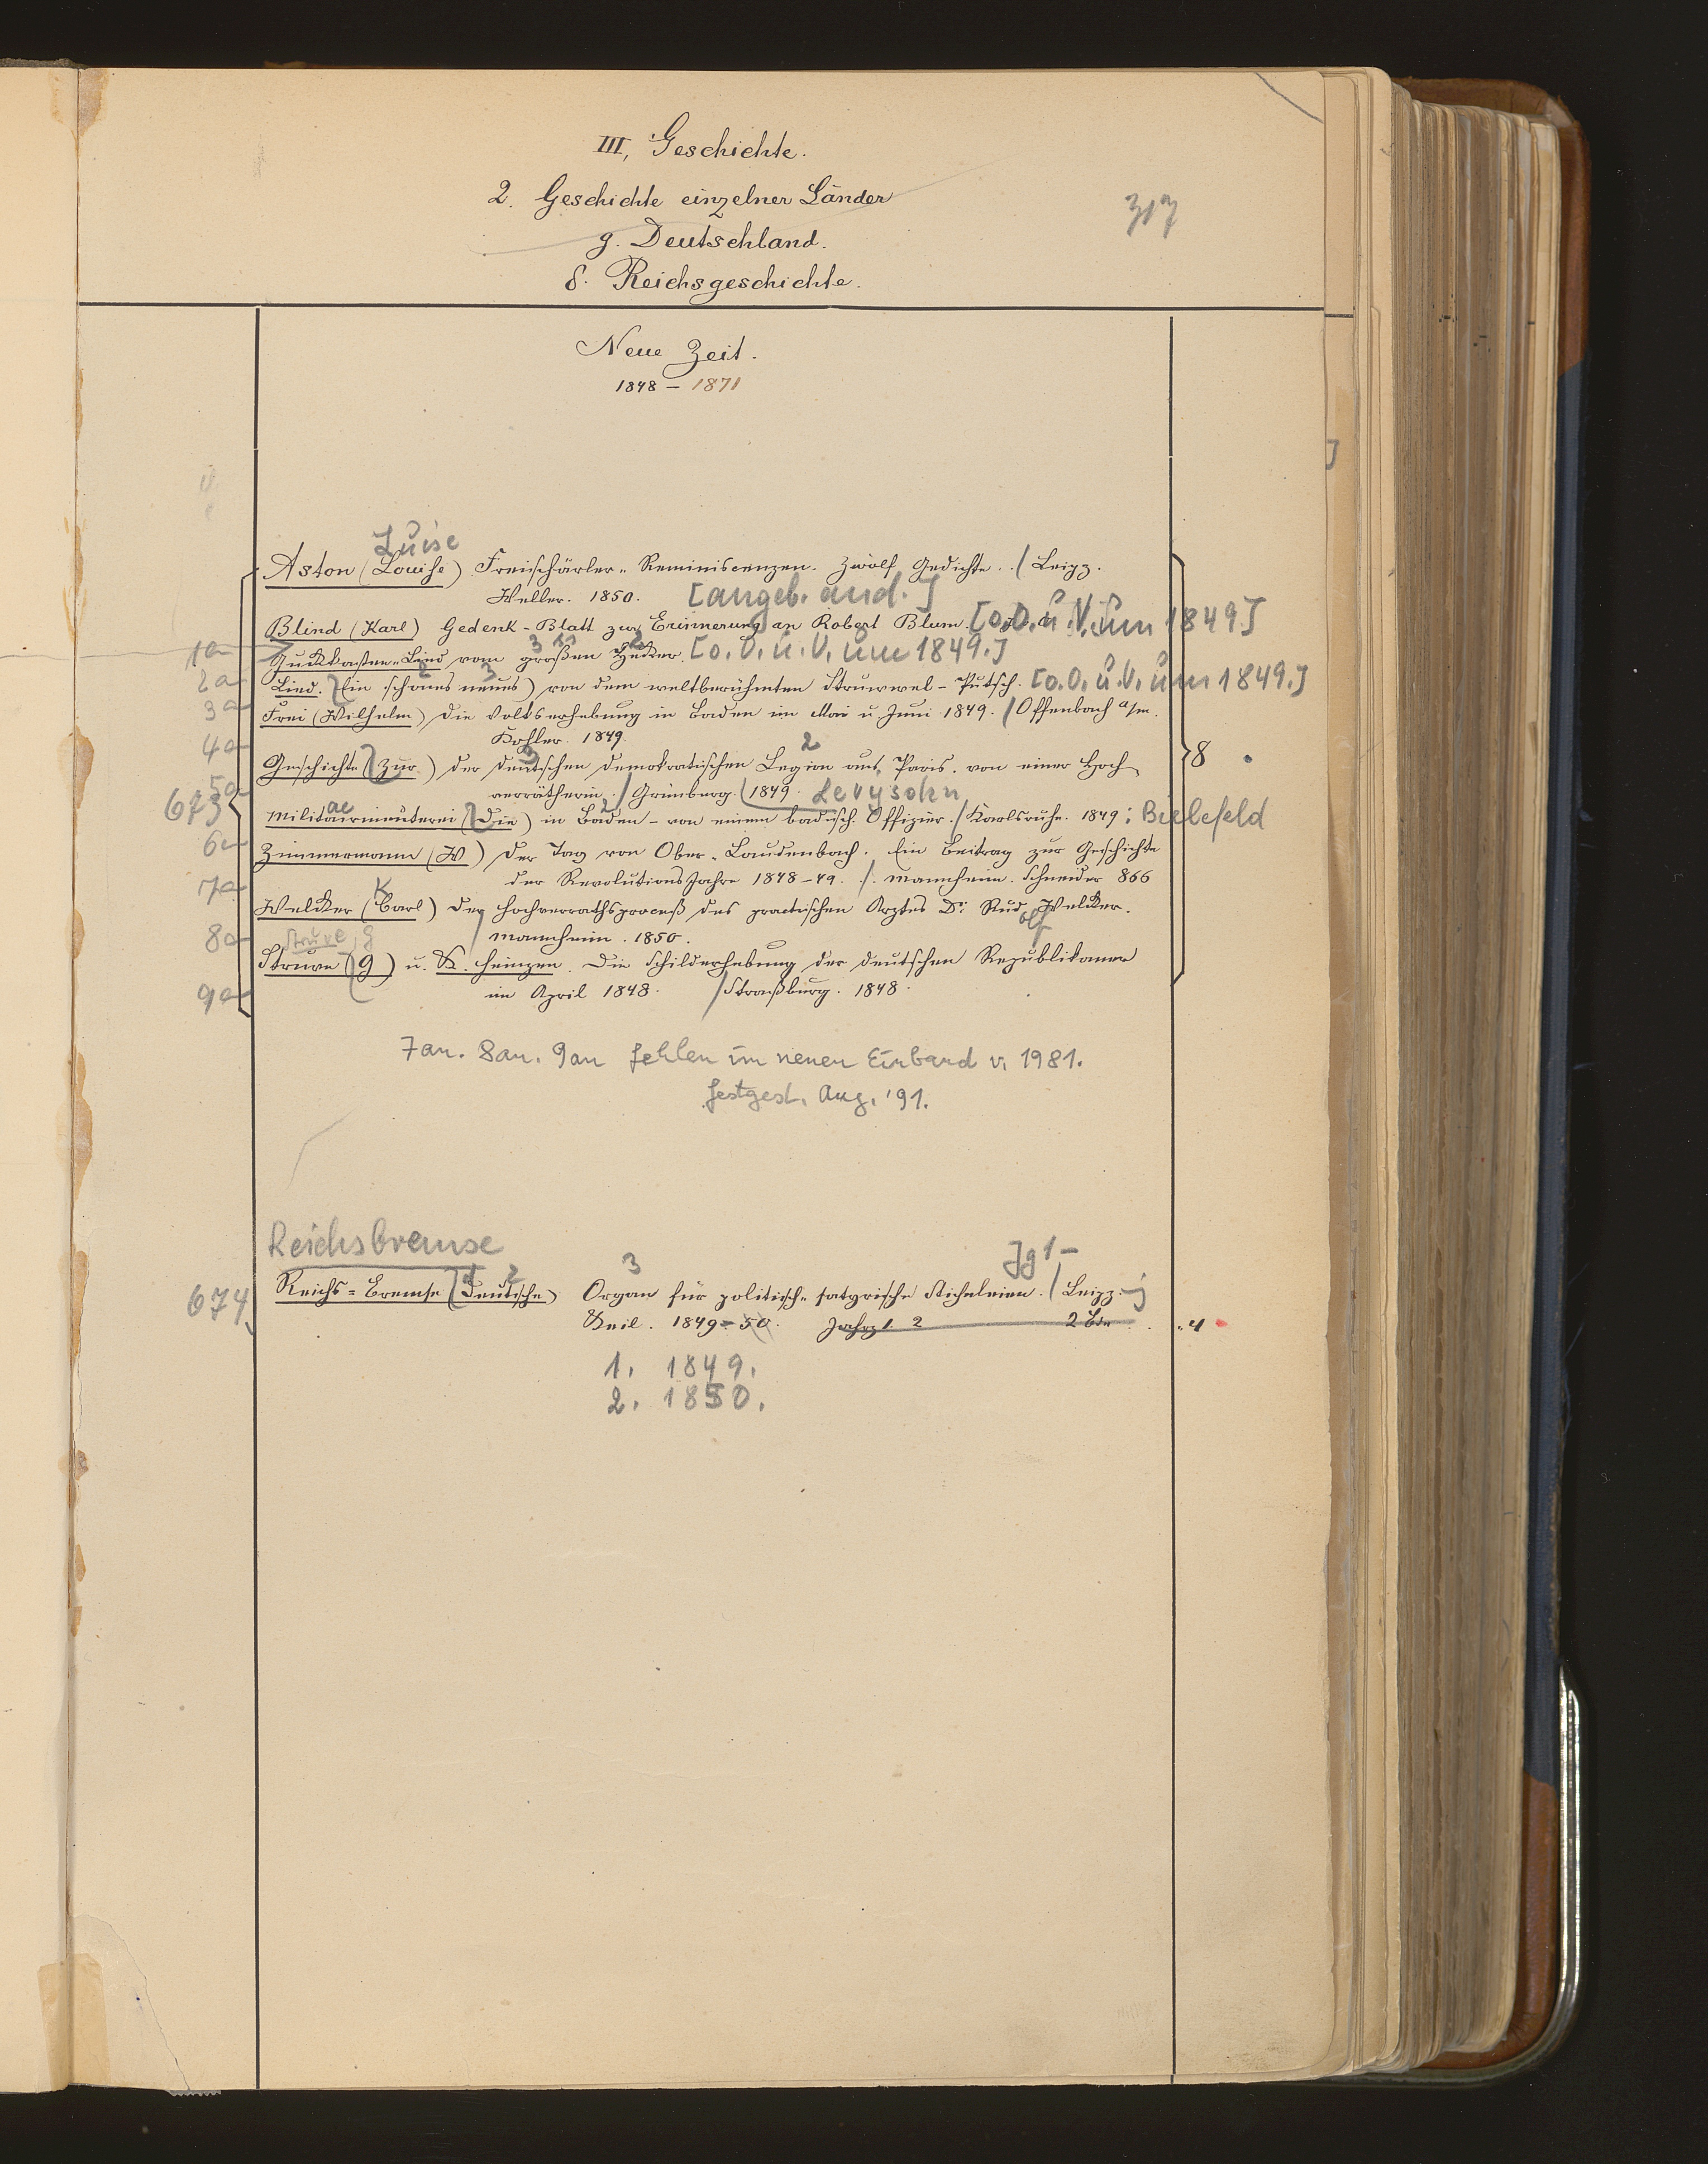 III, Geschichte.
2. Geschichte einzelner Länder
317
g. Deutschland.
δ. Reichsgeschichte.
Neue Zeit.
1848 – 1871
Luise
Aston (Louise) Freischärler-Reminiscenzen. Zwölf Gedichte. / Leipz.
Weller. 1850. [angeb. and.]
Blind (Karl) Gedenk-Blatt zur Erinnerung an Robert Blum. [o.O. u. V. um 1849.]
1an Guckkasten-Lied vom großen Hecker. [o. O. u. V. um 1849.]
2an Lied. (Ein schönes neues) von dem weltberühmten Struwwel-Putsch. [o.O. u. V. um 1849.]
3an Frei (Wilhelm) Die Volkserhebung in Baden im Mai u. Juni 1849. / Offenbach a/m.
Kohler. 1849.
4an Geschichte (Zur) der deutschen demokratischen Legion aus Paris. von einer Hoch
8
5an verrätherin. / Grünberg. 1849. Levysohn
673 ae
Militairmeuterei (Die) in Baden – von einem badisch. Offizier. / Karlsruhe. 1849: Bielefeld
6an Zimmermann (W) Der Tag von Ober-Laudenbach. Ein Beitrag zur Geschichte
der Revolutionsjahre 1848–49. /. Mannheim. Schneider 866
7an K
Welcker (Carl) Der Hochverrathsproceß des practischen Arztes Dr. Rud. Welcker.
olf
8an Mannheim. 1850.
Struve, G
Struve (G) u. K. Heinzen. Die Schilderhebung der deutschen Republikaner
9an im April 1848. / Straßburg. 1848.
7an. 8an. 9an fehlen im neuen Einband v. 1981.
festgest. Aug. '91.
Reichsbremse
Jg 1–
674 Reichs-Bremse (Deutsche) Organ für politisch-satyrische Sticheleien. / Leipz.
Keil. 1849–50. Jahrg 1. 2 2 Bde 4
1. 1849.
2. 1850.